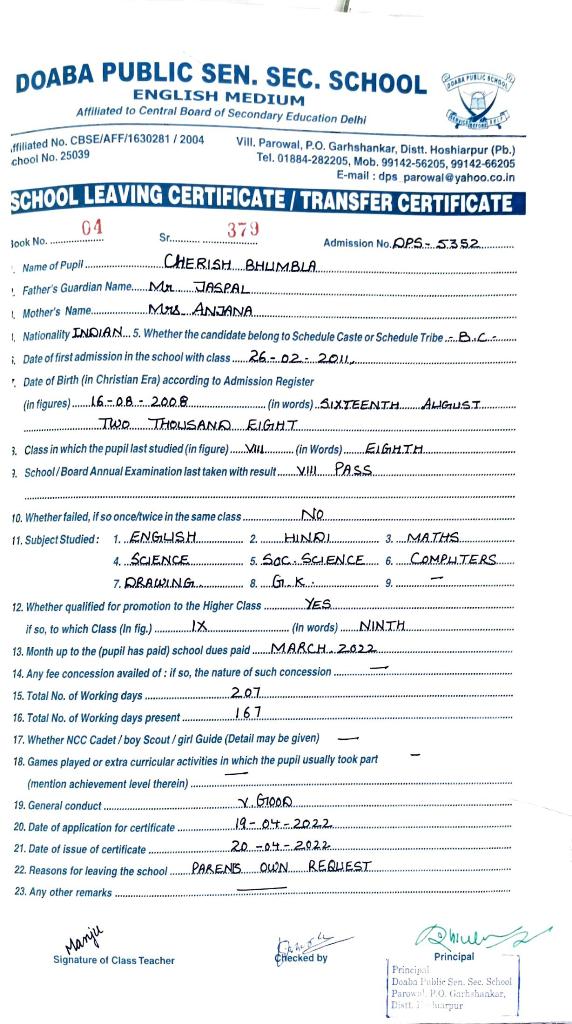 DOABA PUBLIC SEN. SEC. SCHOOL
ENGLISH MEDIUM
Affiliated to Central Board of Secondary Education Delhi
DOABA PUBLIC SCHOOL
ffiliated No. CBSE/AFF/1630281 / 2004
chool No. 25039
Vill. Parowal, P.O. Garhshankar, Distt. Hoshiarpur (Pb.)
Tel. 01884-282205, Mob. 99142-56205, 99142-66205
E-mail : dps_parowal@yahoo.co.in
SCHOOL LEAVING CERTIFICATE / TRANSFER CERTIFICATE
ook No. 04 Sr. 379 Admission No. DPS - 5352
. Name of Pupil CHERISH BHUMBLA
. Father's Guardian Name Mr JASPAL
. Mother's Name Mrs ANJANA
. Nationality INDIAN 5. Whether the candidate belong to Schedule Caste or Schedule Tribe - B.C -
. Date of first admission in the school with class 26 - 02 - 2011,
. Date of Birth (in Christian Era) according to Admission Register
(in figures) 16 - 08 - 2008 (in words) SIXTEENTH AUGUST
TWO THOUSAND EIGHT
. Class in which the pupil last studied (in figure) VIII (in Words) EIGHTH
. School / Board Annual Examination last taken with result VIII PASS
10. Whether failed, if so once/twice in the same class NO
11. Subject Studied : 1. ENGLISH 2. HINDI 3. MATHS
4. SCIENCE 5. SOC. SCIENCE 6. COMPUTERS
7. DRAWING 8. G.K. 9. —
12. Whether qualified for promotion to the Higher Class YES
if so, to which Class (In fig.) IX (In words) NINTH
13. Month up to the (pupil has paid) school dues paid MARCH. 2022
14. Any fee concession availed of : if so, the nature of such concession —
15. Total No. of Working days 207
16. Total No. of Working days present 167
17. Whether NCC Cadet / boy Scout / girl Guide (Detail may be given) —
18. Games played or extra curricular activities in which the pupil usually took part —
(mention achievement level therein) —
19. General conduct V. GOOD
20. Date of application for certificate 19 - 04 - 2022
21. Date of issue of certificate 20 - 04 - 2022
22. Reasons for leaving the school PARENS OWN REQUEST
23. Any other remarks —
Manju
Signature of Class Teacher
Checked by
Principal
Principal
Doaba Public Sen. Sec. School
Parowal, P.O. Garhshankar,
Distt. Hoshiarpur